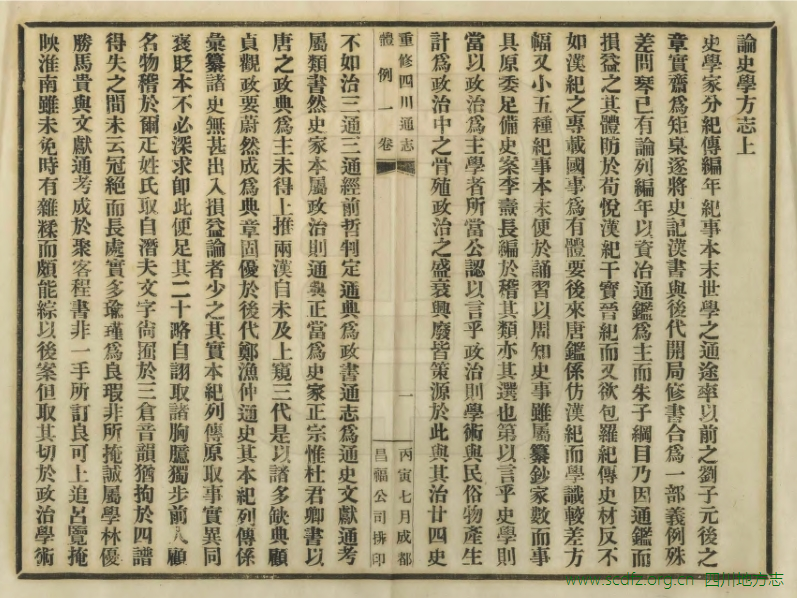 論史學方志上
史學家分紀傳編年紀事本末世學之通途率以前之劉子元後之
章實齋爲矩臬遂將史記漢書與後代開局修書合爲一部義例殊
差間琴已有論列編年以資治通鑑爲主而朱子綱目乃因通鑑而
損益之其體昉於荀悅漢紀干寶晉紀而又欲包羅紀傳史材反不
如漢紀之專載國事爲有體要後來唐鑑係仿漢紀而學識較差方
幅又小五種紀事本末便於誦習以周知史事雖屬纂鈔家數而事
具原委足備史案李燾長編於稽其類亦其選也第以言乎史學則
當以政治爲主學者所當公認以言乎政治則學術與民俗物產生
計爲政治中之骨殖政治之盛衰興廢皆策源於此與其治廿四史
重修四川通志
體例一卷
一
丙寅七月成都
昌福公司排印
不如治三通三通經前哲判定通典爲政書通志爲通史文獻通考
屬類書然史家本屬政治則通典正當爲史家正宗惟杜君卿書以
唐之政典爲主未得上推兩漢自未及上窺三代是以諸多缺典顧
貞觀政要蔚然成爲典章固優於後代鄭漁仲通史其本紀列傳係
彙纂諸史無甚出入損益論者少之其實本紀列傳原取事實異同
褒貶本不必深求卽此便足其二十略自詡取諸胸臆獨步前人顧
名物稽於爾疋姓氏取自潛夫文字尙囿於三倉音韻猶拘於四譜
得失之間未云冠絕而長處實多瑜瑾爲良瑕非所掩誠屬學林優
勝馬貴與文獻通考成於聚客程書非一手所訂良可上追呂覽掩
映淮南雖未免時有雜糅而頗能綜以後案但取其切於政治學術
www.scdfz.org.cn 四川地方志